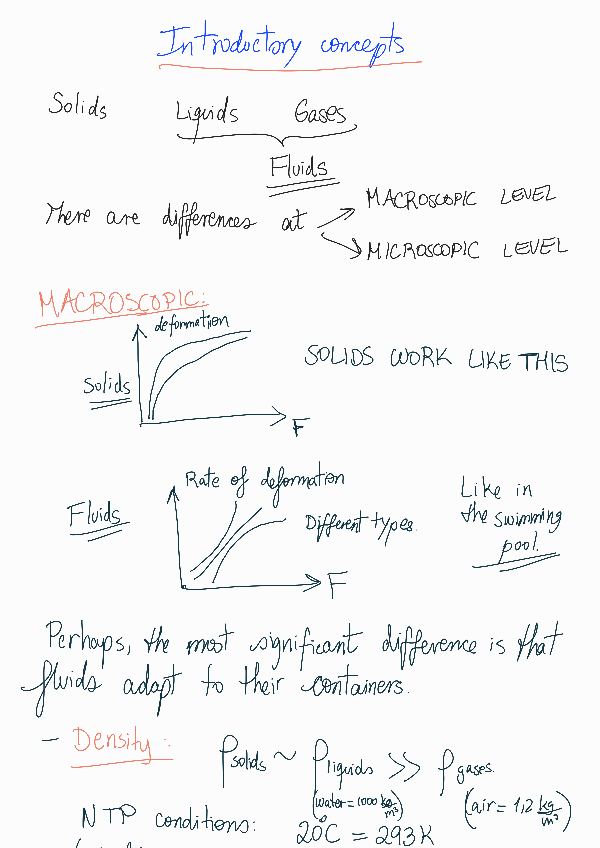 Introductory concepts
Solids Liquids Gases
Fluids
There are differences at
MACROSCOPIC LEVEL
MICROSCOPIC LEVEL
MACROSCOPIC:
deformation
Solids
F
SOLIDS WORK LIKE THIS
Rate of deformation
Fluids
Different types.
F
Like in
the swimming
pool.
Perhaps, the most significant difference is that
fluids adapt to their containers.
- Density:
ρsolids ~ ρliquids >> ρgases.
(water = 1000 kg/m³) (air = 1,2 kg/m³)
NTP conditions: 20°C = 293K